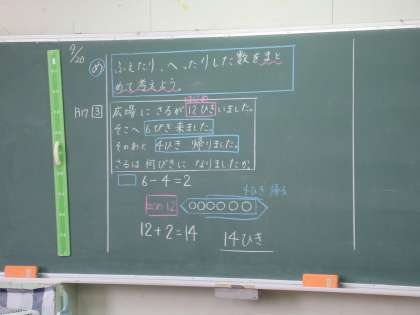 9/20
め ふえたり、へったりした数をまと
めて考えよう。
P.17 3 広場にさるが12ひきいました。
そこへ6ぴき来ました。
そのあと4ひき帰りました。
さるは何びきになりましたか。
6-4=2
4ひき帰る
はじめ12
12+2=14
14ひき